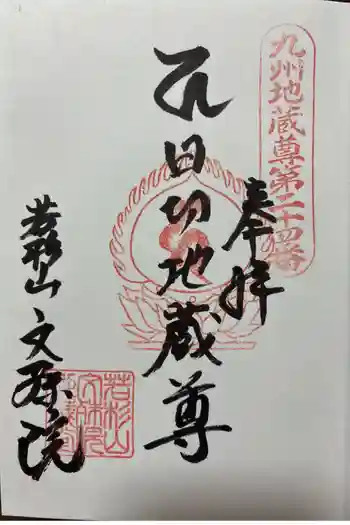 九州地蔵尊第二十四番
奉拝
日切地蔵尊
若杉山 文殊院
若杉山
文殊院